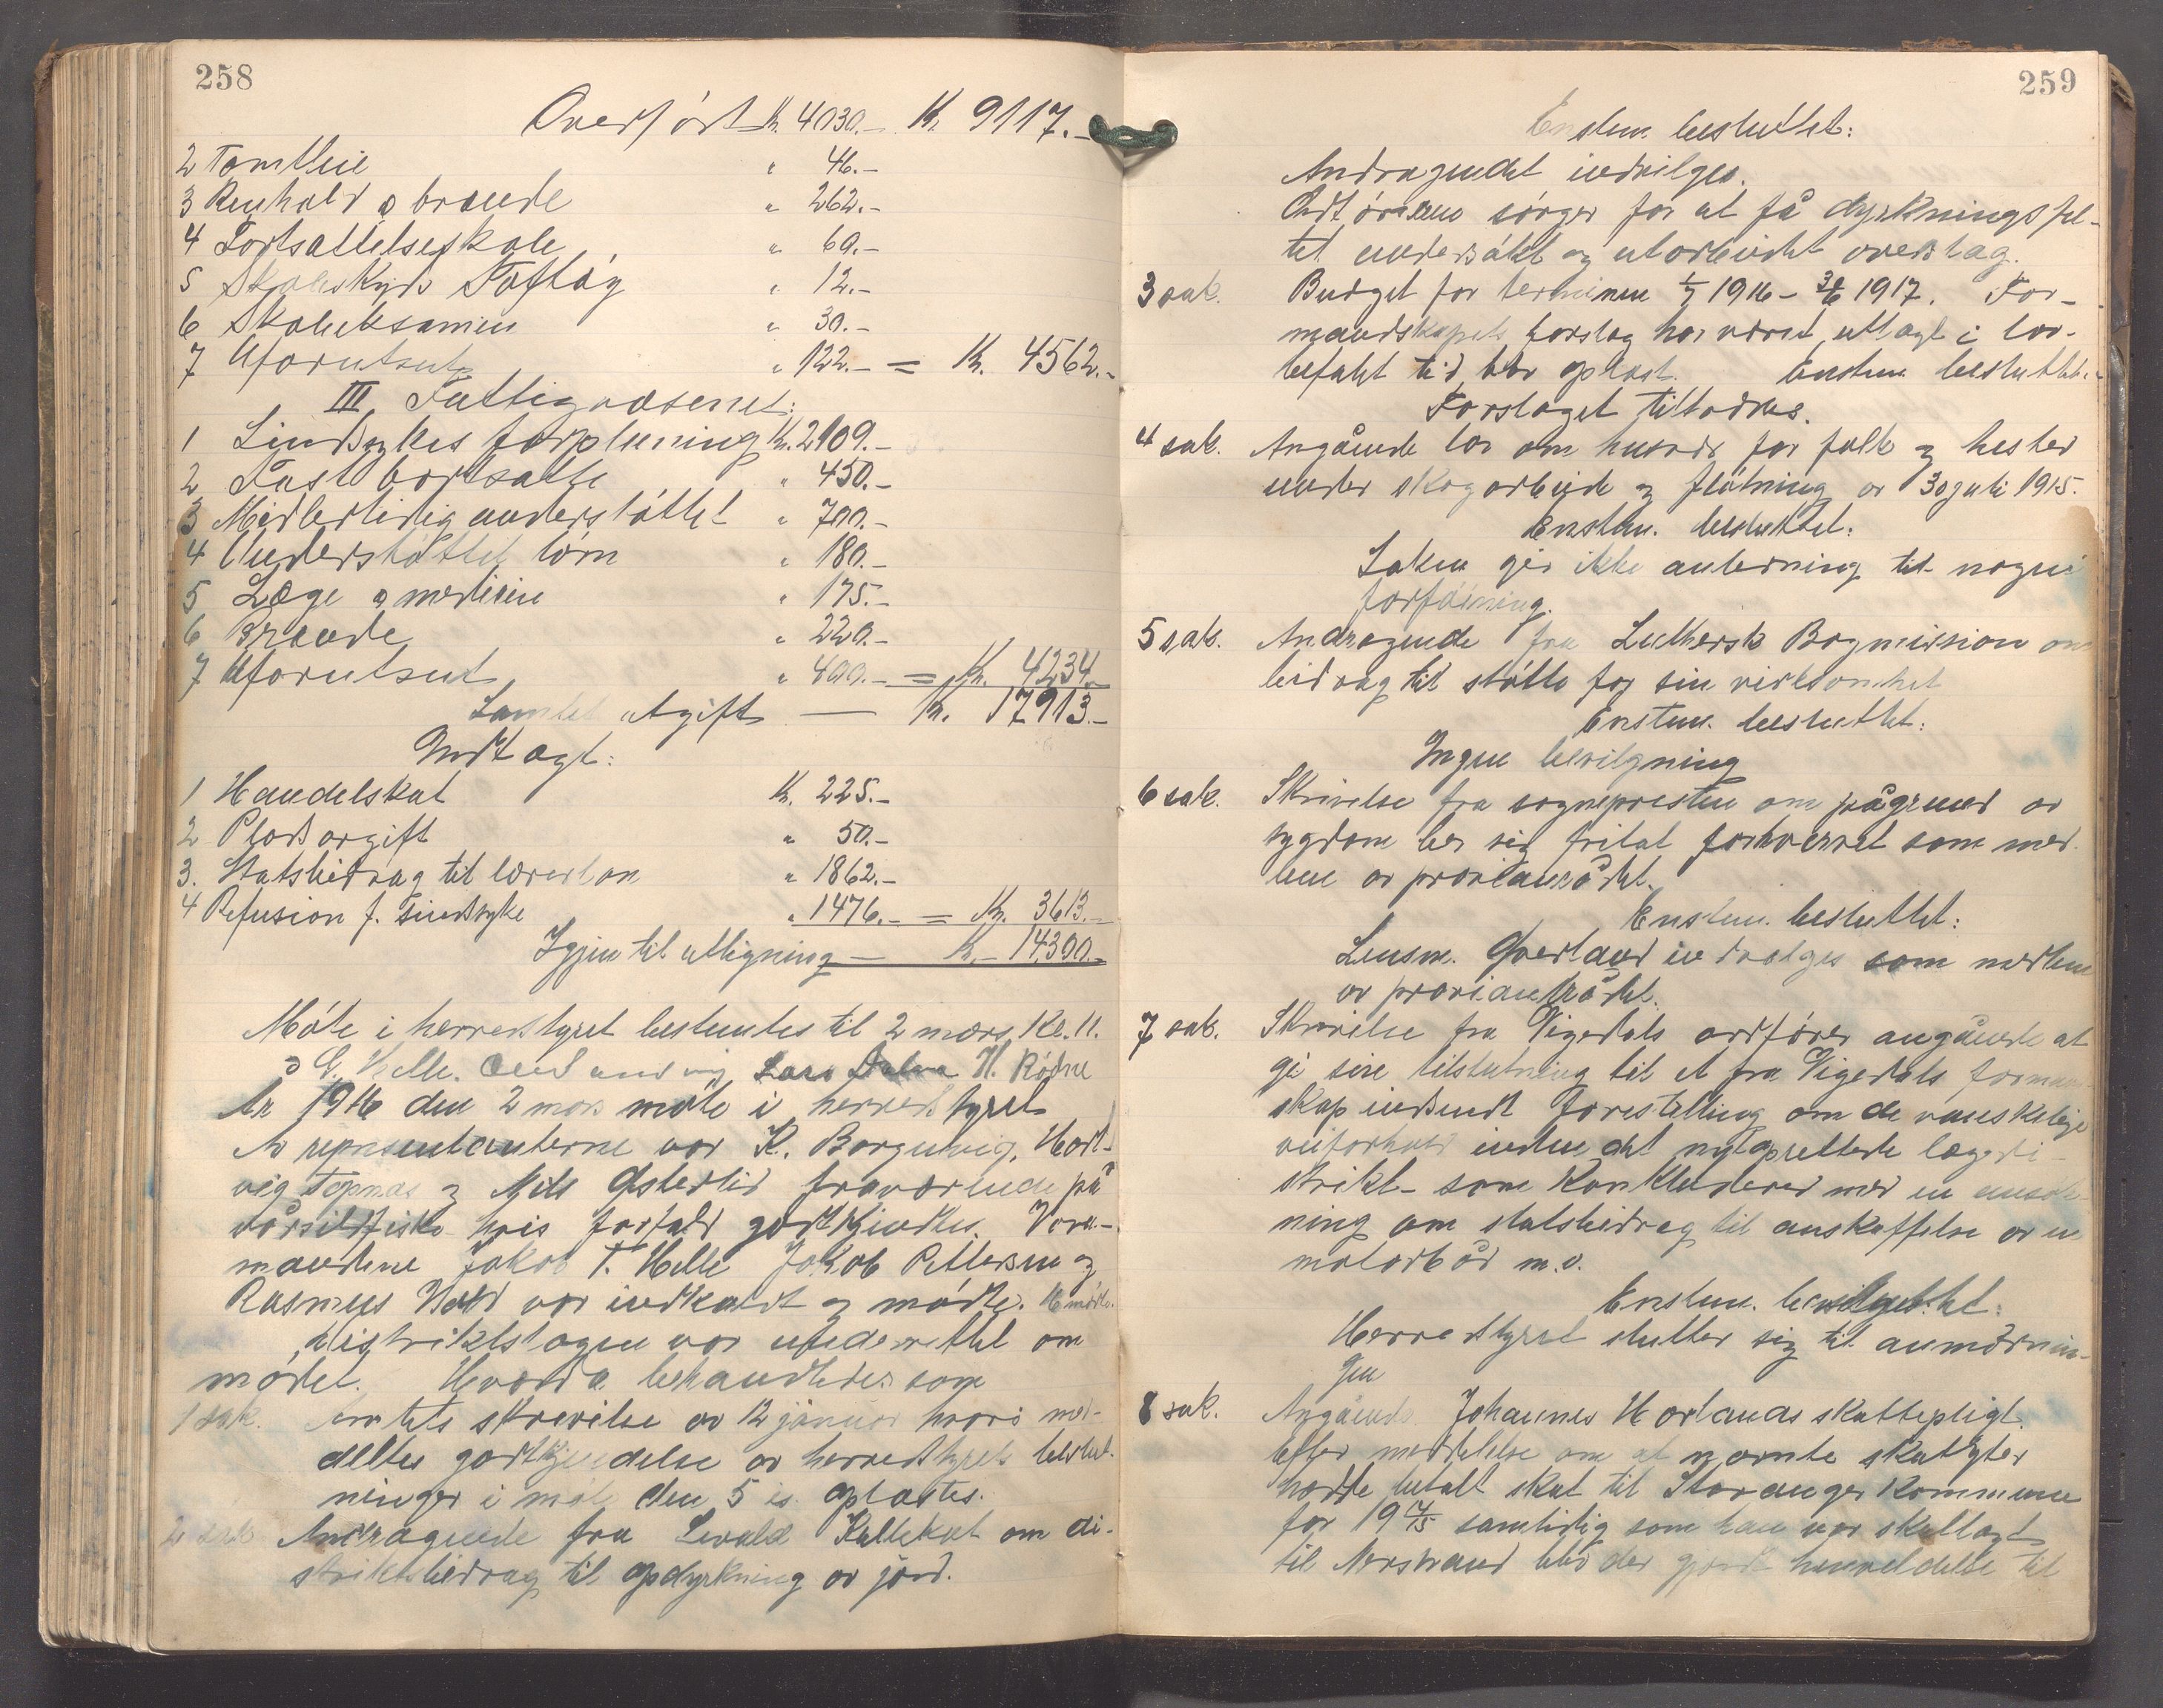 258
Overført Kr. 4030.- Kr. 9117.-
2 Tomtleie " 46.-
3 Renhold o brænde " 262.-
4 Fortsættelseskole " 60.-
5 Skoleskyds Toftøy " 12.-
6 Skoleeksamen " 30.-
7 Uforutset " 122.- = Kr. 4562.-
III Fattigvæsenet:
1 Sindssykes forpleining Kr. 2109.-
2 Fast bortsatte " 450.-
3 Midlertidig understøttet " 700.-
4 Understøttet børn " 180.-
5 Læge o medisin " 175.-
6 Brænde " 220.-
7 Uforutset " 400.- = Kr. 4234.-
Samlet utgift — Kr. 17913.-
Indtægt:
1 Handelskat Kr. 225.-
2 Pladsavgift " 50.-
3. Statsbidrag til lærerløn " 1862.-
4 Refusion f. sindssyke " 1476.- = Kr. 3613.-
Igjen til utligning — Kr.- 14300.-
Møte i herredstyret bestemtes til 2 mars, kl. 11.
Helle. Lars Dalva H. Rødne
År 1916 den 2 mars møte i herredstyret
Av representanterne var K. Borgenvig, Hart-
vig Topnes og Nils Østerlid fraværende på
vårsildfiske hvis forfald godkjendtes. Vara-
mændene Jakob T. Helle Jakob Pettersen og
Rasmus Hold var indkaldt og mødte.
distriktslægen var underrettet om
mødet. Herda behandledes som
1 sak. Amtets skrivelse av 12 januar hvori med-
deltes godkjendelse av herredstyrets beslut-
ninger i møte den 5 ds. oplæstes.
2 sak Andragende fra Sevald Kallekot om di-
striktsbidrag til opdyrkning av jord.
259
Enstem. besluttet:
Andragendet indvilges.
Ordføreren sørger for at få dyrkningsfel-
tet undersøkt og utarbeidet overslag.
3 sak. Budget for terminen 1/7 1916 - 30/6 1917. For-
mandskapets forslag har været utlagt i lov-
befalt tid, blev oplæst. Enstem. besluttet:
Forslaget tiltrædes.
4 sak. Angående lov om husvær for folk og hester
under skogarbeide og fløtning av 30 juli 1915.
Enstem. besluttet:
Saken gir ikke anledning til nogen
forføining.
5 sak. Andragende fra Luthersk Bogmission om
bidrag til støtte for sin virksomhet
Enstem. besluttet:
Ingen bevilgning
6 sak. Skrivelse fra sognepresten om pågrund av
sygdom ber sig fritat forhvervet som med-
lem av proviantrådet.
Enstem. besluttet:
Lensm. Øverland indvælges som medlem
av proviantrådet.
7 sak. Skrivelse fra Vigedals ordfører angående at
gi sin tilslutning til et fra Vigedals formand-
skap indsendt forestilling om de vanskelige
veiforhold inden det nyoprettede lægedi-
strikt - som konkluderer med en ansøk-
ning om statsbidrag til anskaffelse av en
motorbåd m.v.
Enstem. besluttet:
Herredstyret slutter sig til anmodnin-
gen
8 sak. Angående Johannes Hovlands skattepligt.
Efter meddelelse om at nævnte skatyter
hadde betalt skat til Stavanger kommune
for 19 14/15 samtidig som han var skatlagt
til Nerstrand blev der gjort henvendelse til